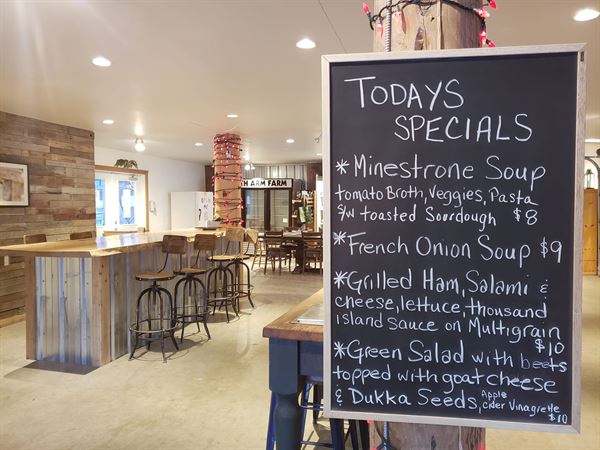 TODAYS
SPECIALS
* Minestrone Soup
tomato Broth, Veggies, Pasta
S/W toasted Sourdough $8
* French Onion Soup $9
* Grilled Ham, Salami &
cheese, lettuce, thousand
island Sauce on Multigrain
$10
* Green Salad with beets
topped with goat cheese
& Dukka Seeds, Apple
Cider Vinagrette
$10
TH ARM FARM